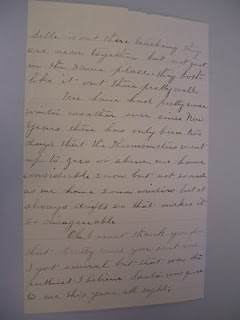 Belle is out there teaching they
are near together but not just
in the same place. they both
like it out there pretty well
We have had pretty severe
winter weather ever since New
Years there has only been two
days that the Thermometer went
up to zero or above, we have
considerable snow but not as much
as we have some winters but it
always drifts so that makes it
so disagreeable
Oh I must thank you for
that pretty card you sent me
I got several but that was the
prettiest I believe Santa was good
to me this year all right,